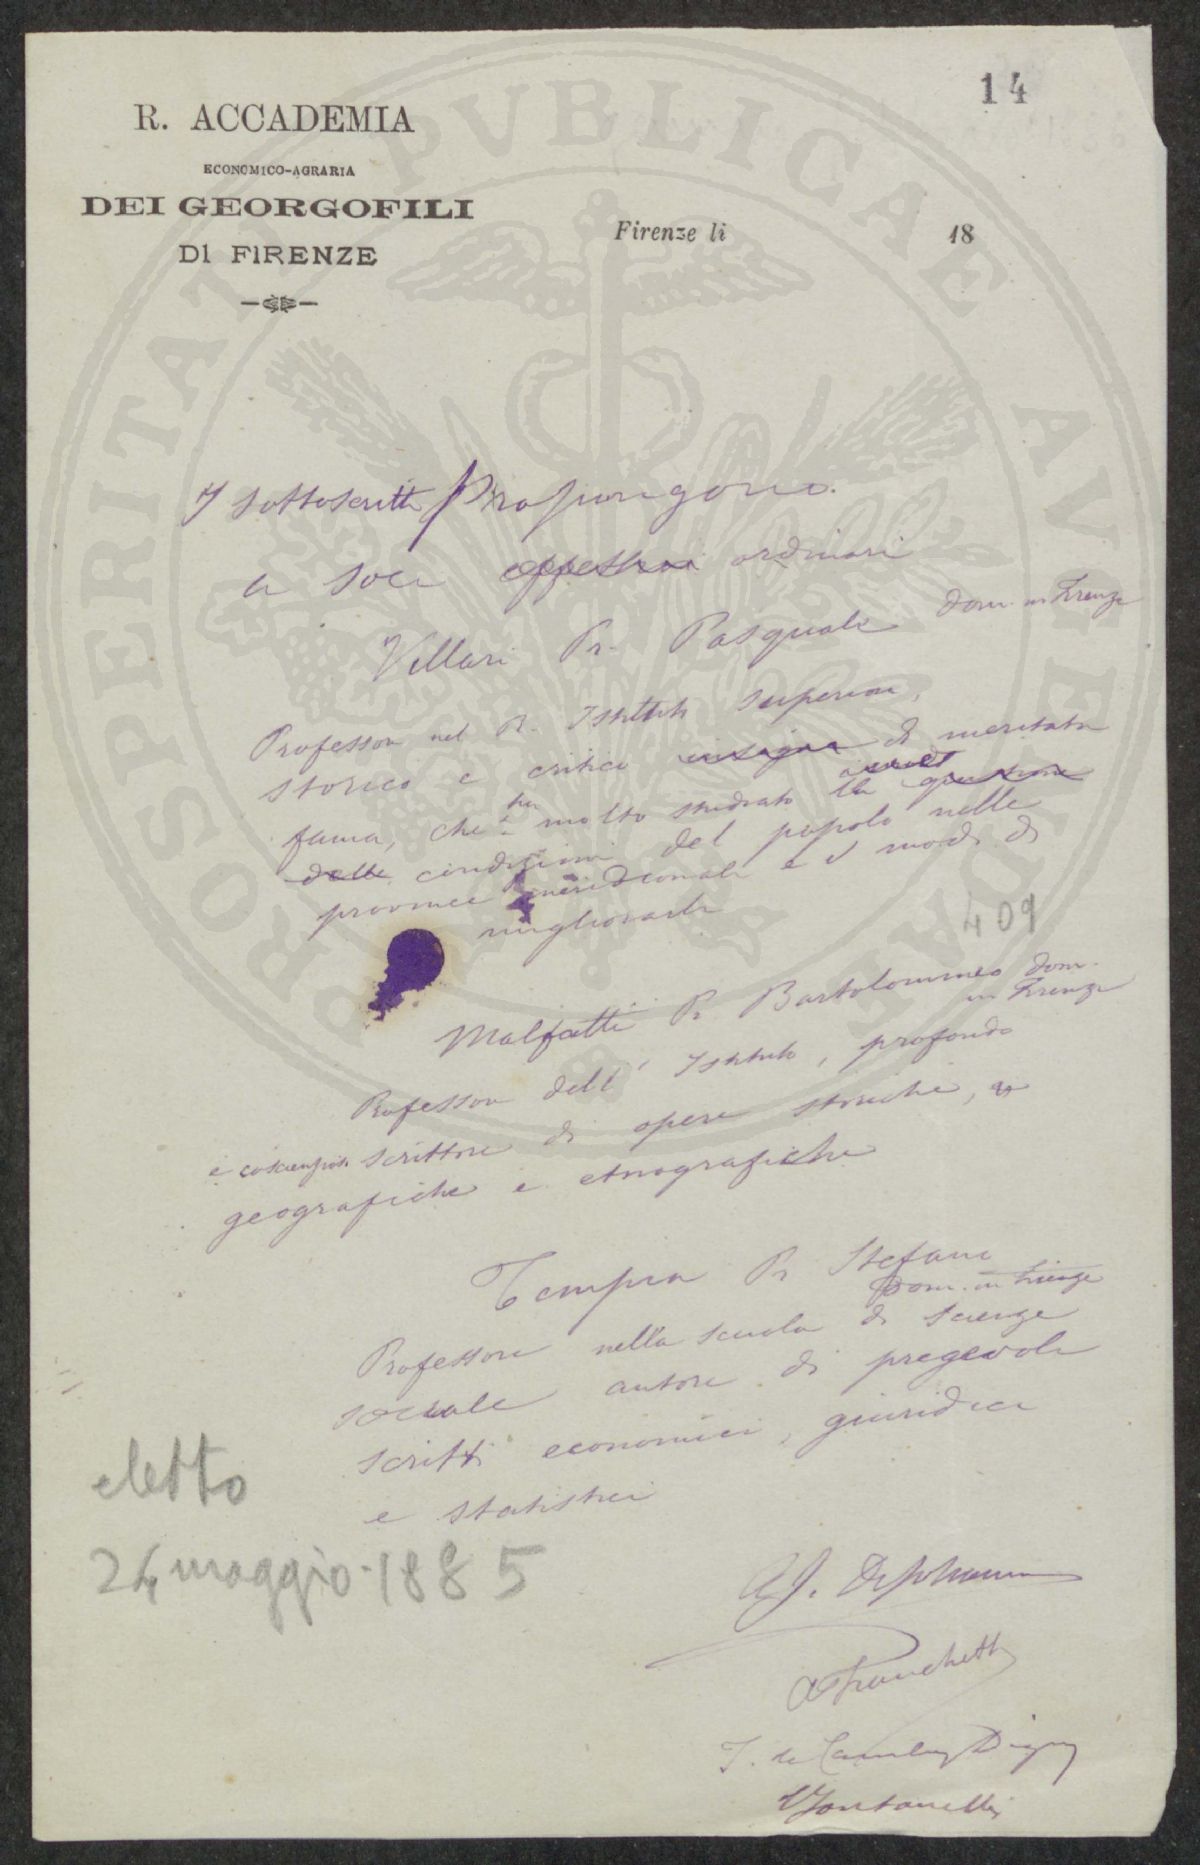 14
R. ACCADEMIA
ECONOMICO-AGRARIA
DEI GEORGOFILI
DI FIRENZE
Firenze li 18
I sottoscritti Propongono
a soci ordinari
Villari Pr. Pasquale dom. in Firenze
Professore nel R. Istituto Superiore,
storico e critico insigne di meritata
fama, che ha molto studiato le questione
delle condizioni del popolo nelle
provincie meridionali e i modi di
migliorarle
409
Malfatti Pr. Bartolommeo dom.
in Firenze
Professore dell' Istituto, profondo
e coscienzioso scrittore di opere storiche,
geografiche e etnografiche
Pr. Stefano
Dom. in Firenze
Professore nella scuola di Scienze
sociale autore di pregevole
scritti economici, giuridici
e statistici
eletto
24 maggio 1885
A Franchetti
T. de Cambray Digny
Fontanelli
PROSPERITATI PUBLICAE AUGENDAE